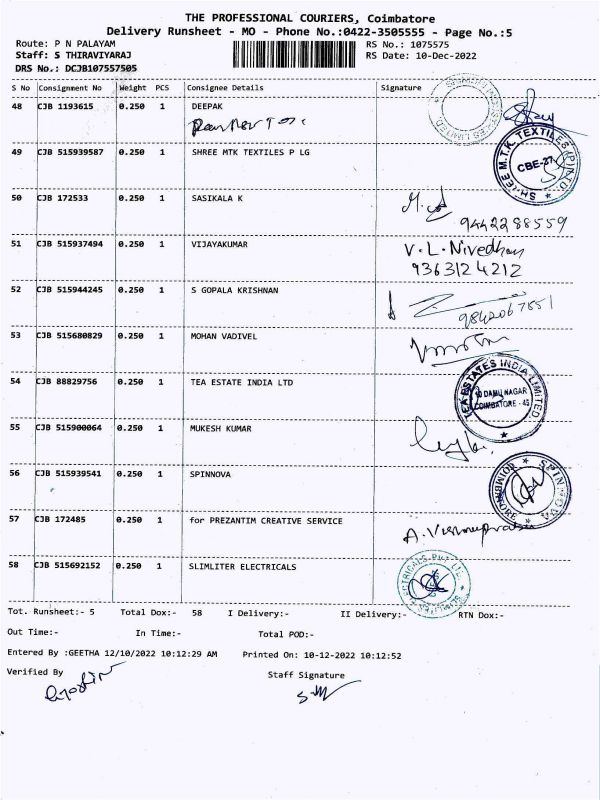 THE PROFESSIONAL COURIERS, Coimbatore
Delivery Runsheet - MO - Phone No.:0422-3505555 - Page No.:5
Route: P N PALAYAM RS No.: 1075575
Staff: S THIRAVIYARAJ RS Date: 10-Dec-2022
DRS No.: DCJB107557505
S No Consignment No Weight PCS Consignee Details Signature
48 CJB 1193615 0.250 1 DEEPAK
49 CJB 515939587 0.250 1 SHREE MTK TEXTILES P LG
SHREE M.T.K. TEXTILES (P) LTD.
CBE-27
50 CJB 172533 0.250 1 SASIKALA K
9442288559
51 CJB 515937494 0.250 1 VIJAYAKUMAR V.L.Nivedhan
9363124212
52 CJB 515944245 0.250 1 S GOPALA KRISHNAN
9842067851
53 CJB 515680829 0.250 1 MOHAN VADIVEL
54 CJB 88829756 0.250 1 TEA ESTATE INDIA LTD
TEA ESTATES INDIA LIMITED.
DAMU NAGAR
COIMBATORE - 45
55 CJB 515900064 0.250 1 MUKESH KUMAR
56 CJB 515939541 0.250 1 SPINNOVA
SPINNOVA COIMBATORE
57 CJB 172485 0.250 1 for PREZANTIM CREATIVE SERVICE
58 CJB 515692152 0.250 1 SLIMLITER ELECTRICALS
Tot. Runsheet:- 5 Total Dox:- 58 I Delivery:- II Delivery:- RTN Dox:-
Out Time:- In Time:- Total POD:-
Entered By :GEETHA 12/10/2022 10:12:29 AM Printed On: 10-12-2022 10:12:52
Verified By Staff Signature